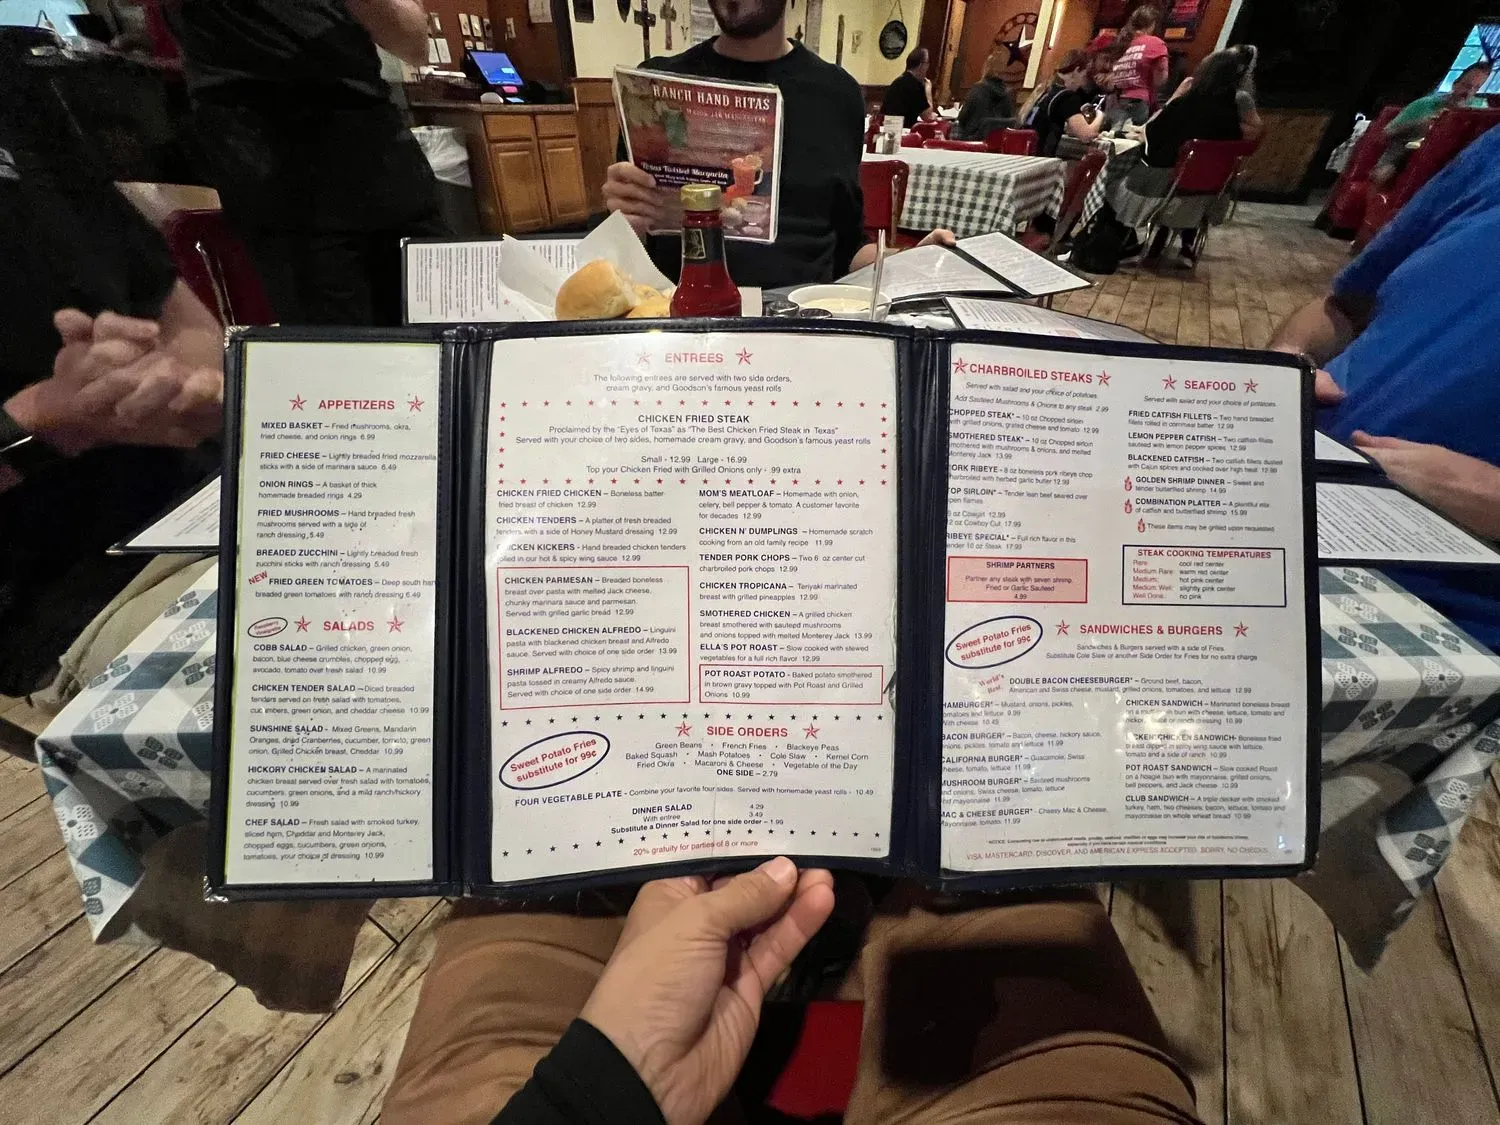 RANCH HAND RITAS
Texas Twisted Margarita
APPETIZERS
MIXED BASKET – Fried mushrooms, okra,
fried cheese, and onion rings 6.99
FRIED CHEESE – Lightly breaded fried mozzarella
sticks with a side of marinara sauce 6.49
ONION RINGS – A basket of thick
homemade breaded rings 4.29
FRIED MUSHROOMS – Hand breaded fresh
mushrooms served with a side of
ranch dressing 5.49
BREADED ZUCCHINI – Lightly breaded fresh
zucchini sticks with ranch dressing 5.49
NEW
FRIED GREEN TOMATOES – Deep south han
breaded green tomatoes with ranch dressing 6.49
Raspberry
Vinaigrette
SALADS
COBB SALAD – Grilled chicken, green onion,
bacon, blue cheese crumbles, chopped egg,
avocado, tomato over fresh salad 10.99
CHICKEN TENDER SALAD –Diced breaded
tenders served on fresh salad with tomatoes,
cucumbers, green onion, and cheddar cheese 10.99
SUNSHINE SALAD - Mixed Greens, Mandarin
Oranges, dried Cranberries, cucumber, tomato, green
onion, Grilled Chicken breast, Cheddar 10.99
HICKORY CHICKEN SALAD – A marinated
chicken breast served over fresh salad with tomatoes,
cucumbers, green onions, and a mild ranch/hickory
dressing 10.99
CHEF SALAD – Fresh salad with smoked turkey,
sliced ham, Cheddar and Monterey Jack,
chopped eggs, cucumbers, green onions,
tomatoes, your choice of dressing 10.99
ENTREES
The following entrees are served with two side orders,
cream gravy, and Goodson's famous yeast rolls
CHICKEN FRIED STEAK
Proclaimed by the "Eyes of Texas" as "The Best Chicken Fried Steak in Texas"
Served with your choice of two sides, homemade cream gravy, and Goodson's famous yeast rolls
Small - 12.99 Large - 16.99
Top your Chicken Fried with Grilled Onions only - .99 extra
CHICKEN FRIED CHICKEN – Boneless batter
fried breast of chicken 12.99
CHICKEN TENDERS – A platter of fresh breaded
tenders with a side of Honey Mustard dressing 12.99
CHICKEN KICKERS - Hand breaded chicken tenders
rolled in our hot & spicy wing sauce 12.99
CHICKEN PARMESAN – Breaded boneless
breast over pasta with melted Jack cheese,
chunky marinara sauce and parmesan.
Served with grilled garlic bread 12.99
BLACKENED CHICKEN ALFREDO – Linguini
pasta with blackened chicken breast and Alfredo
sauce. Served with choice of one side order 13.99
SHRIMP ALFREDO – Spicy shrimp and linguini
pasta tossed in creamy Alfredo sauce.
Served with choice of one side order 14.99
MOM'S MEATLOAF – Homemade with onion,
celery, bell pepper & tomato. A customer favorite
for decades 12.99
CHICKEN N' DUMPLINGS – Homemade scratch
cooking from an old family recipe 11.99
TENDER PORK CHOPS – Two 6 oz center cut
charbroiled pork chops 12.99
CHICKEN TROPICANA – Teriyaki marinated
breast with grilled pineapples 12.99
SMOTHERED CHICKEN – A grilled chicken
breast smothered with sauteed mushrooms
and onions topped with melted Monterey Jack 13.99
ELLA'S POT ROAST – Slow cooked with stewed
vegetables for a full rich flavor 12.99
POT ROAST POTATO - Baked potato smothered
in brown gravy topped with Pot Roast and Grilled
Onions 10.99
Sweet Potato Fries
substitute for 99¢
SIDE ORDERS
Green Beans • French Fries • Blackeye Peas
Baked Squash • Mash Potatoes • Cole Slaw • Kernel Corn
Fried Okra • Macaroni & Cheese • Vegetable of the Day
ONE SIDE – 2.79
FOUR VEGETABLE PLATE - Combine your favorite four sides. Served with homemade yeast rolls - 10.49
DINNER SALAD 4.29
With entree 3.49
Substitute a Dinner Salad for one side order – 1.99
20% gratuity for parties of 8 or more
CHARBROILED STEAKS
Served with salad and your choice of potatoes.
Add Sauteed Mushrooms & Onions to any steak 2.99
CHOPPED STEAK* – 10 oz Chopped sirloin
with grilled onions, grated cheese and tomato 12.99
SMOTHERED STEAK* – 10 oz Chopped sirloin
smothered with mushrooms & onions, and melted
Monterey Jack 13.99
PORK RIBEYE - 8 oz boneless pork ribeye chop
charbroiled with herbed garlic butter 12.99
TOP SIRLOIN* – Tender lean beef seared over
open flames
oz Cowgirl 12.99
12 oz Cowboy Cut 17.99
RIBEYE SPECIAL* – Full rich flavor in this
tender 10 oz Steak 17.99
SHRIMP PARTNERS
Partner any steak with seven shrimp.
Fried or Garlic Sauteed
4.99
SEAFOOD
Served with salad and your choice of potatoes.
FRIED CATFISH FILLETS – Two hand breaded
fillets rolled in cornmeal batter 12.99
LEMON PEPPER CATFISH – Two catfish fillets
sauteed with lemon pepper spices 12.99
BLACKENED CATFISH – Two catfish fillets dusted
with Cajun spices and cooked over high heat 12.99
GOLDEN SHRIMP DINNER – Sweet and
tender butterflied shrimp 14.99
COMBINATION PLATTER – A plentiful mix
of catfish and butterflied shrimp 15.99
These items may be grilled upon requested
STEAK COOKING TEMPERATURES
Rare: cool red center
Medium Rare: warm red center
Medium: hot pink center
Medium Well: slightly pink center
Well Done: no pink
Sweet Potato Fries
substitute for 99¢
SANDWICHES & BURGERS
Sandwiches & Burgers served with a side of Fries.
Substitute Cole Slaw or another Side Order for Fries for no extra charge
World's
Best
DOUBLE BACON CHEESEBURGER* – Ground beef, bacon,
American and Swiss cheese, mustard, grilled onions, tomatoes, and lettuce 12.99
HAMBURGER* – Mustard, onions, pickles,
tomatoes and lettuce 9.99
With cheese 10.49
BACON BURGER* – Bacon, cheese, hickory sauce,
onions, pickles, tomato and lettuce 11.99
CALIFORNIA BURGER* – Guacamole, Swiss
cheese, tomato, lettuce 11.99
MUSHROOM BURGER* – Sauteed mushrooms
and onions, Swiss cheese, tomato, lettuce
and mayonnaise 11.99
MAC & CHEESE BURGER* Cheesy Mac & Cheese,
Mayonnaise, tomato 11.99
CHICKEN SANDWICH – Marinated boneless breast
on a bun with cheese, lettuce, tomato and
hickory or ranch dressing 10.99
KICKEN' CHICKEN SANDWICH- Boneless fried
breast dipped in spicy wing sauce with lettuce,
tomato and a side of ranch 10.99
POT ROAST SANDWICH – Slow cooked Roast
on a hoagie bun with mayonnaise, grilled onions,
bell peppers, and Jack cheese 10.99
CLUB SANDWICH – A triple decker with smoked
turkey, ham, two cheeses, bacon, lettuce, tomato and
mayonnaise on whole wheat bread 10.99
VISA, MASTERCARD, DISCOVER, AND AMERICAN EXPRESS ACCEPTED. SORRY, NO CHECKS